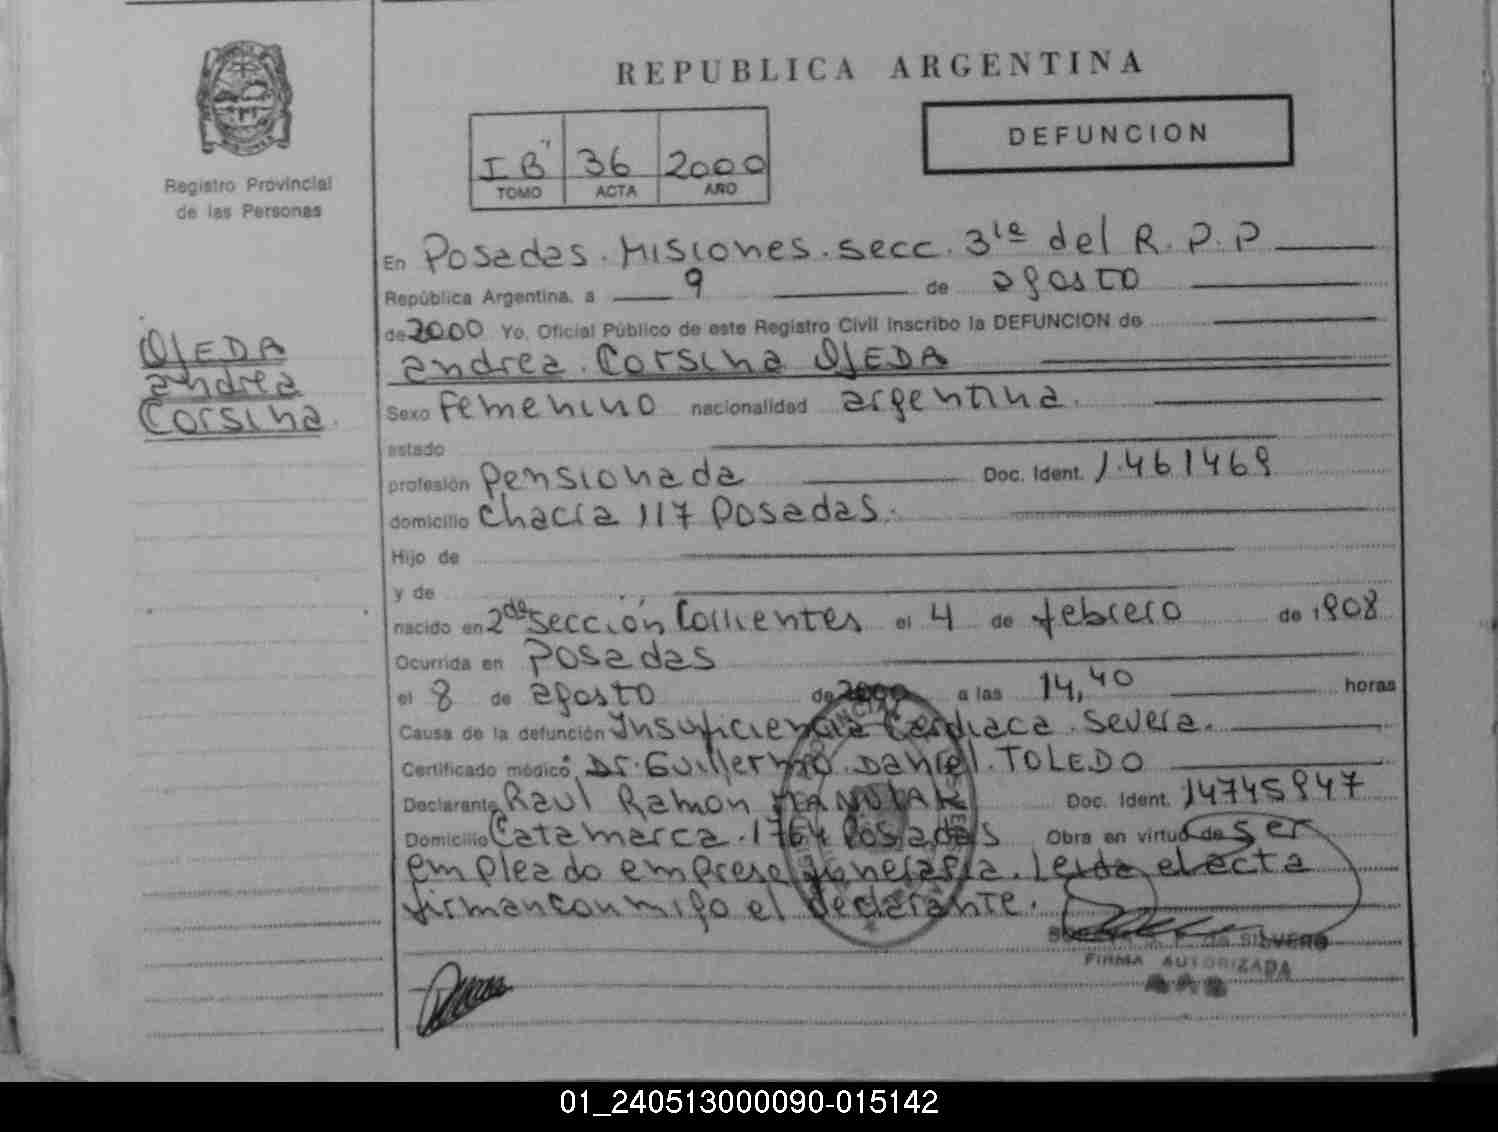 REPUBLICA ARGENTINA
DEFUNCION
I B" 36 2000
TOMO ACTA AÑO
Registro Provincial
de las Personas
OJEDA
andrea
Corsina.
En Posadas. Misiones. secc. 3ra del R. P. P
República Argentina, a 9 de agosto
de 2000 Yo, Oficial Público de este Registro Civil inscribo la DEFUNCION de
andrea. Corsina OJEDA
Sexo femenino nacionalidad argentina.
estado
profesión Pensionada Doc. Ident. 1.461469
domicilio Chacra 117 Posadas.
Hijo de
y de
nacido en 2da Sección Corrientes el 4 de febrero de 1908
Ocurrida en Posadas
el 8 de agosto de 2000 a las 14,40 horas
Causa de la defunción Insuficiencia Cardiaca. Severa.
Certificado médico Dr. Guillermo. Daniel. TOLEDO
Declarante Raul Ramon Doc. Ident. 14745947
Domicilio Catamarca. 1764 Posadas Obra en virtud de ser
empleado empresa funeraria. leida el acta
firman conmigo el declarante.
de SILVERO
FIRMA AUTORIZADA
01_240513000090-015142